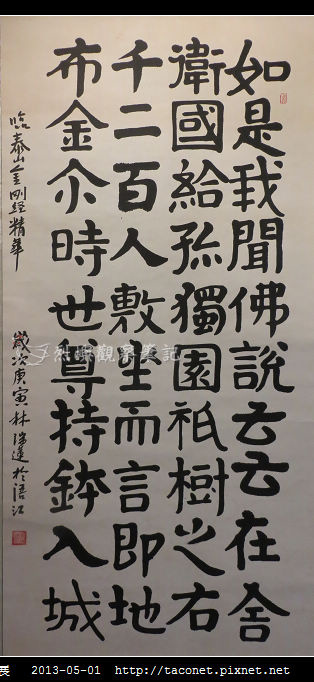 如是我聞佛說云云在舍
衛國給孤獨園祇樹之右
千二百人敷坐而言即地
布金尒時世尊持鉢入城
臨泰山金剛經精華
歲次庚寅林蓮於浯江
烈嶼觀察筆記
展 2013-05-01 http://taconet.pixnet.net